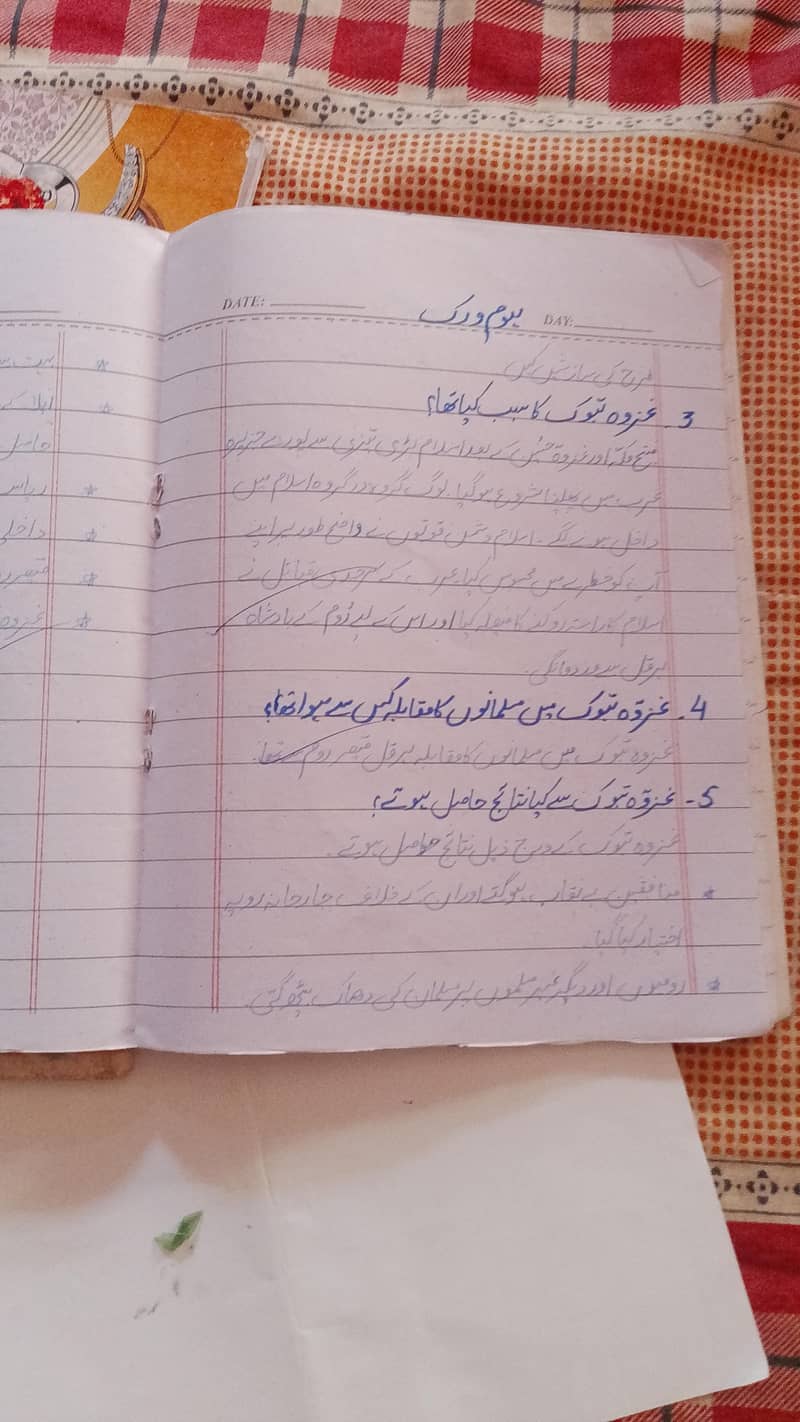 DATE: ہوم ورک DAY:
طرح کی سازشیں کیں
3۔ غزوہ تبوک کا سبب کیا تھا؟
فتح مکہ اور غزوۃ حنین کے بعد اسلام بڑی تیزی سے پورے جزیرہ
عرب میں پھیلنا شروع ہوگیا۔ لوگ گروہ در گروہ اسلام میں
داخل ہونے لگے۔ اسلام دشمن قوتوں نے واضح طور پر اپنے
آپ کو خطرے میں محسوس کیا عرب کے سرحدی قبائل نے
اسلام کا راستہ روکنے کا فیصلہ کیا اور اس کے لیے روم کے بادشاہ
ہرقل سے مدد مانگی۔
4۔ غزوہ تبوک میں مسلمانوں کا مقابلہ کس سے ہوا تھا؟
غزوہ تبوک میں مسلمانوں کا مقابلہ ہرقل قیصر روم سے تھا۔
5۔ غزوہ تبوک سے کیا نتائج حاصل ہوئے؟
غزوہ تبوک کے درج ذیل نتائج حاصل ہوئے۔
* منافقین بے نقاب ہوگئے اور ان کے خلاف جارحانہ رویہ
اختیار کیا گیا۔
* رومیوں اور دیگر غیر مسلموں پر مسلمان کی دھاک بیٹھ گئی۔
*
*
* حاصل
*
* داخلی
*
* غزوہ